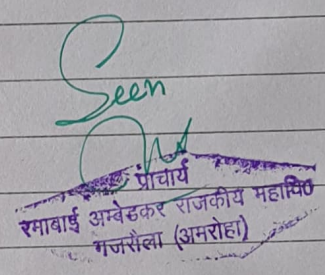 Seen
प्राचार्य
रमाबाई अम्बेडकर राजकीय महावि०
गजरौला (अमरोहा)